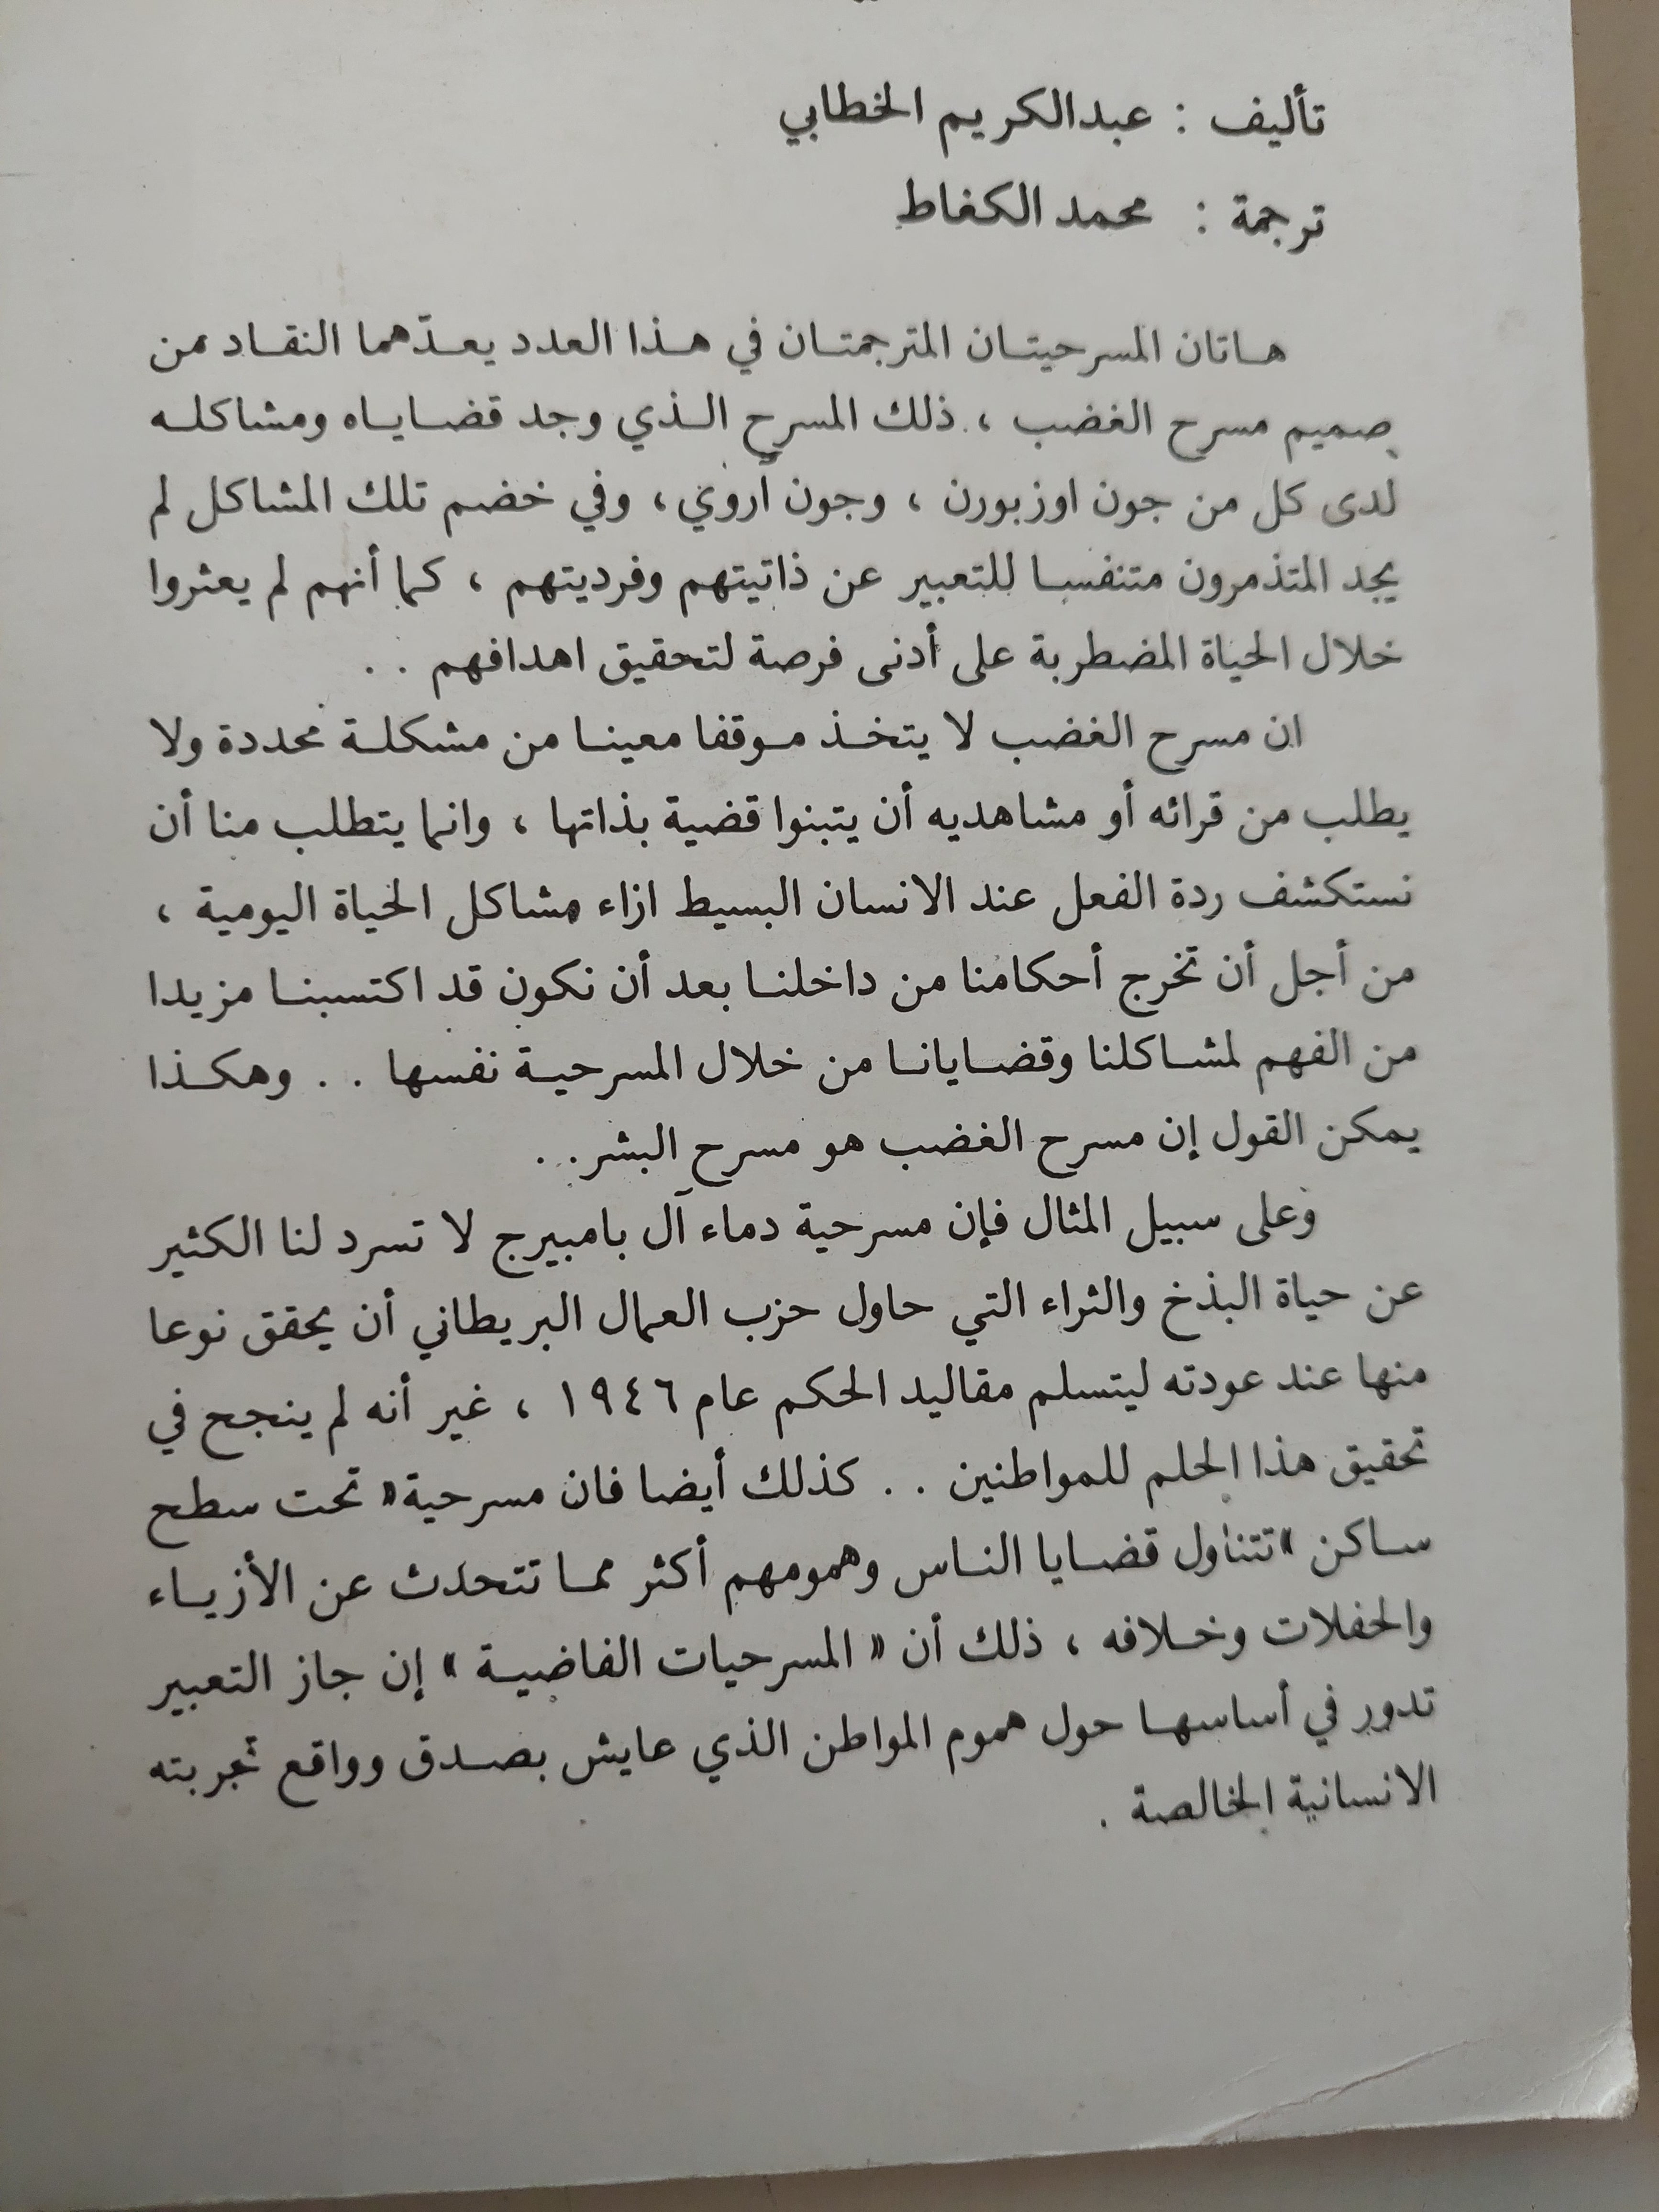 تأليف : عبدالكريم الخطابي
ترجمة : محمد الكغاط
هاتان المسرحيتان المترجمتان في هذا العدد يعدّهما النقاد من
صميم مسرح الغضب ، ذلك المسرح الذي وجد قضاياه ومشاكله
لدى كل من جون اوزبورن ، وجون آروي ، وفي خضم تلك المشاكل لم
يجد المتذمرون متنفسا للتعبير عن ذاتيتهم وفرديتهم ، كما أنهم لم يعثروا
خلال الحياة المضطربة على أدنى فرصة لتحقيق اهدافهم . .
ان مسرح الغضب لا يتخذ موقفا معينا من مشكلة محددة ولا
يطلب من قرائه أو مشاهديه أن يتبنوا قضية بذاتها ، وانما يتطلب منا أن
نستكشف ردة الفعل عند الانسان البسيط ازاء مشاكل الحياة اليومية ،
من أجل أن تخرج أحكامنا من داخلنا بعد أن نكون قد اكتسبنا مزيدا
من الفهم لمشاكلنا وقضايانا من خلال المسرحية نفسها . . وهكذا
يمكن القول إن مسرح الغضب هو مسرح البشر . .
وعلى سبيل المثال فإن مسرحية دماء آل بامبيرج لا تسرد لنا الكثير
عن حياة البذخ والثراء التي حاول حزب العمال البريطاني أن يحقق نوعا
منها عند عودته ليتسلم مقاليد الحكم عام ١٩٤٦ ، غير أنه لم ينجح في
تحقيق هذا الحلم للمواطنين . . كذلك أيضا فان مسرحية « تحت سطح
ساكن » تتناول قضايا الناس وهمومهم أكثر مما تتحدث عن الأزياء
والحفلات وخلافه ، ذلك أن « المسرحيات الفاضية » إن جاز التعبير
تدور في أساسها حول هموم المواطن الذي عايش بصدق وواقع تجربته
الانسانية الخالصة .